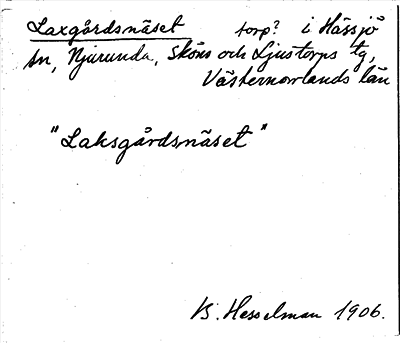 Laxgårdsnäset torp? i Hässjö
sn, Njurunda, Sköns och Ljustorps tg,
Västernorrlands län
"Laksgårdsnäset"
B. Hesselman 1906.